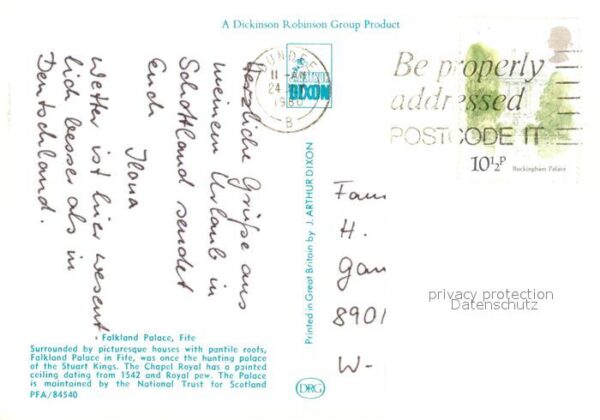 A Dickinson Robinson Group Product
Herzliche Grüße aus
meinem Urlaub in
Schottland sendet
Euch
Ilona
Wetter ist hier wesent-
lich besser als in
Deutschland.
DUNDEE
11-AM
24
1980
B
DIXON
Be properly
addressed
POSTCODE IT
10½P
Buckingham Palace
Printed in Great Britain by J. ARTHUR DIXON
Fam
H.
Gan
8901
W-
privacy protection
Datenschutz
Falkland Palace, Fife
Surrounded by picturesque houses with pantile roofs,
Falkland Palace in Fife, was once the hunting palace
of the Stuart Kings. The Chapel Royal has a painted
ceiling dating from 1542 and Royal pew. The Palace
is maintained by the National Trust for Scotland
PFA/84540
DRG